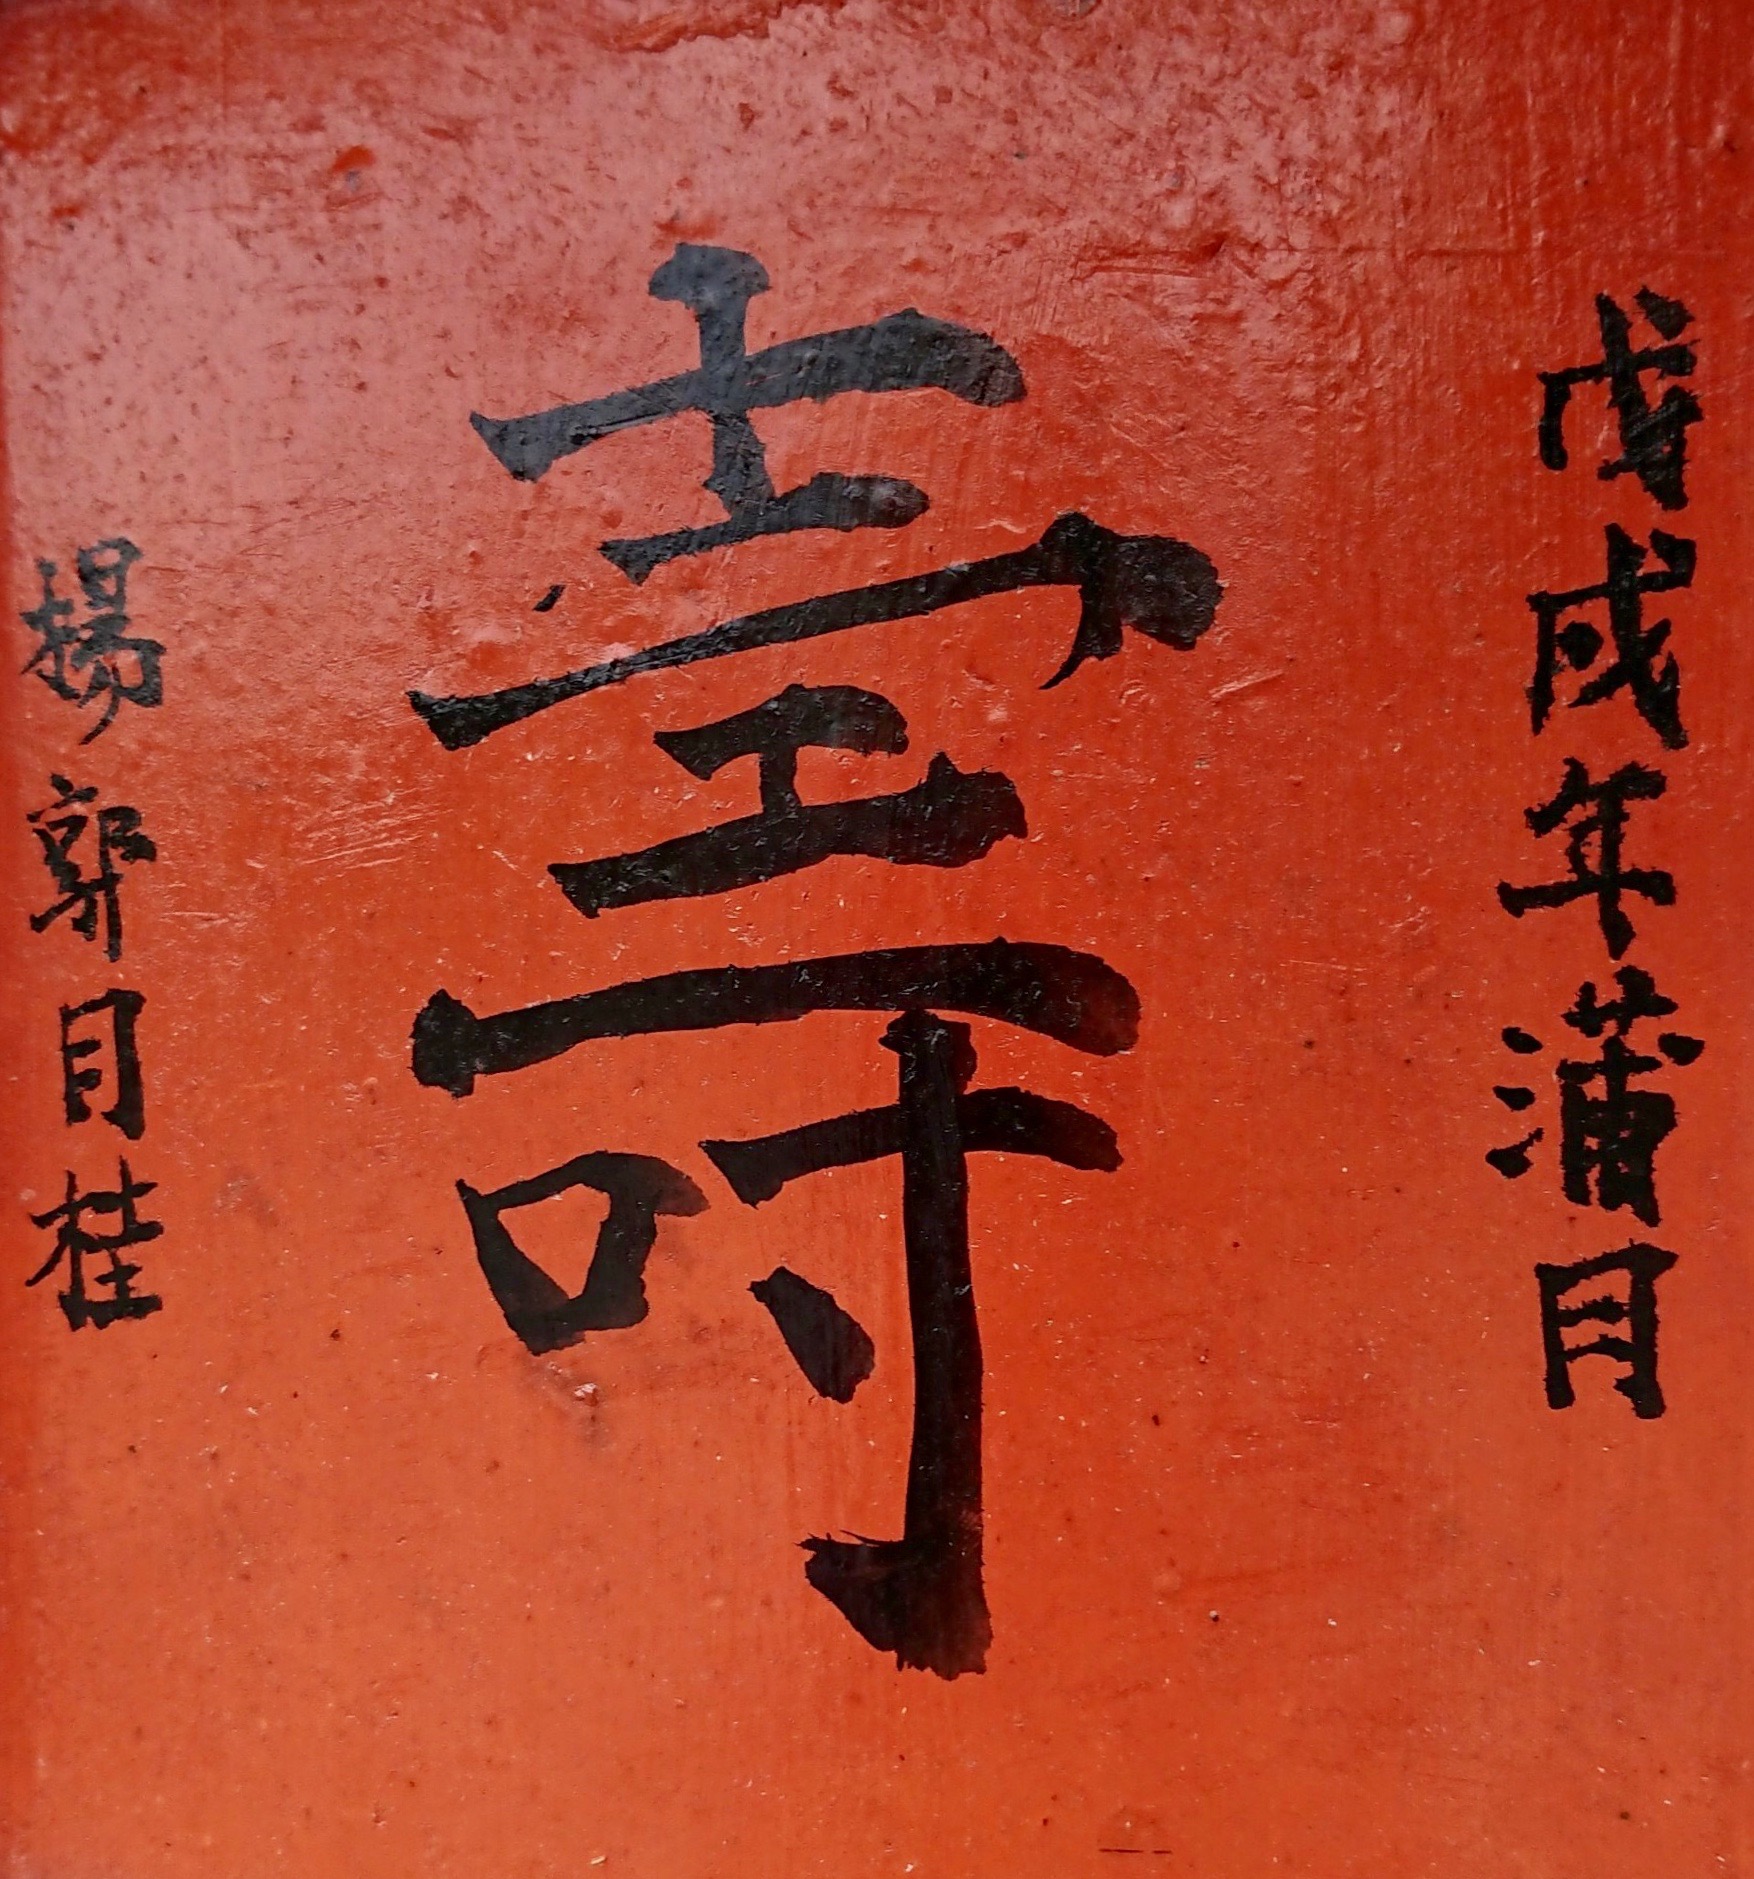 戊戌年蒲月
壽
楊郭月桂